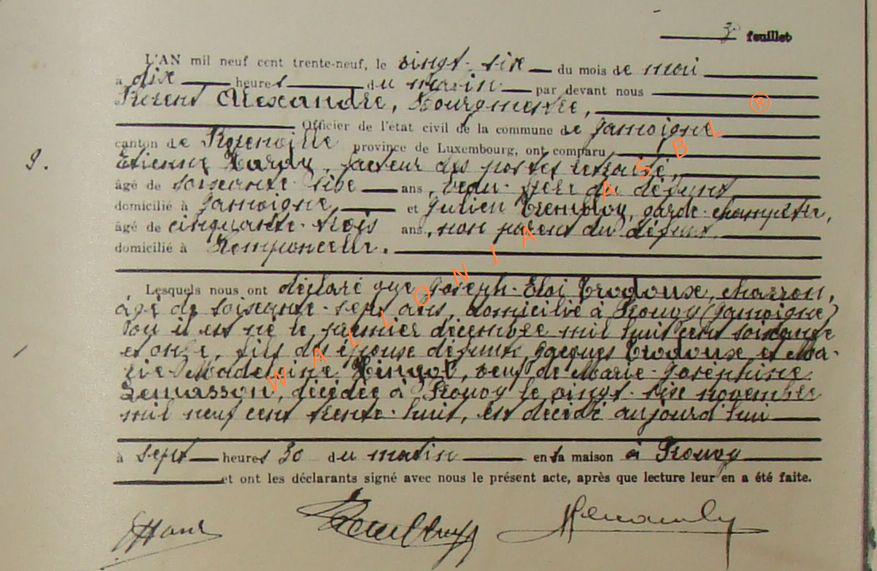 3 feuillet
L'AN mil neuf cent trente-neuf, le vingt-six du mois de mai
à dix heures du matin par devant nous
Alexandre, Bourgmestre,
Officier de l'état civil de la commune de Jamoigne
canton de province de Luxembourg, ont comparu
9.
Etienne facteur des postes retraité,
âgé de soixante-six ans, beau-frère du défunt
domicilié à Jamoigne et Julien garde-champêtre,
âgé de cinquante-trois ans, non parent du défunt
domicilié à Romponcelle.
Lesquels nous ont déclaré que Joseph-Eloi Trodoux, charron,
âgé de soixante-sept ans, domicilié à Prouvy (Jamoigne)
où il est né le premier décembre mil huit cent soixante
et onze, fils des époux défunts, Jacques Trodoux et Ma-
rie-Madeleine veuf de Marie-Joséphine
Lemasson, décédée à Prouvy le vingt-six novembre
mil neuf cent trente-huit, est décédé aujourd'hui
à sept heures 30 du matin en sa maison à Prouvy
et ont les déclarants signé avec nous le présent acte, après que lecture leur en a été faite.
WALLONIA ASBL ®